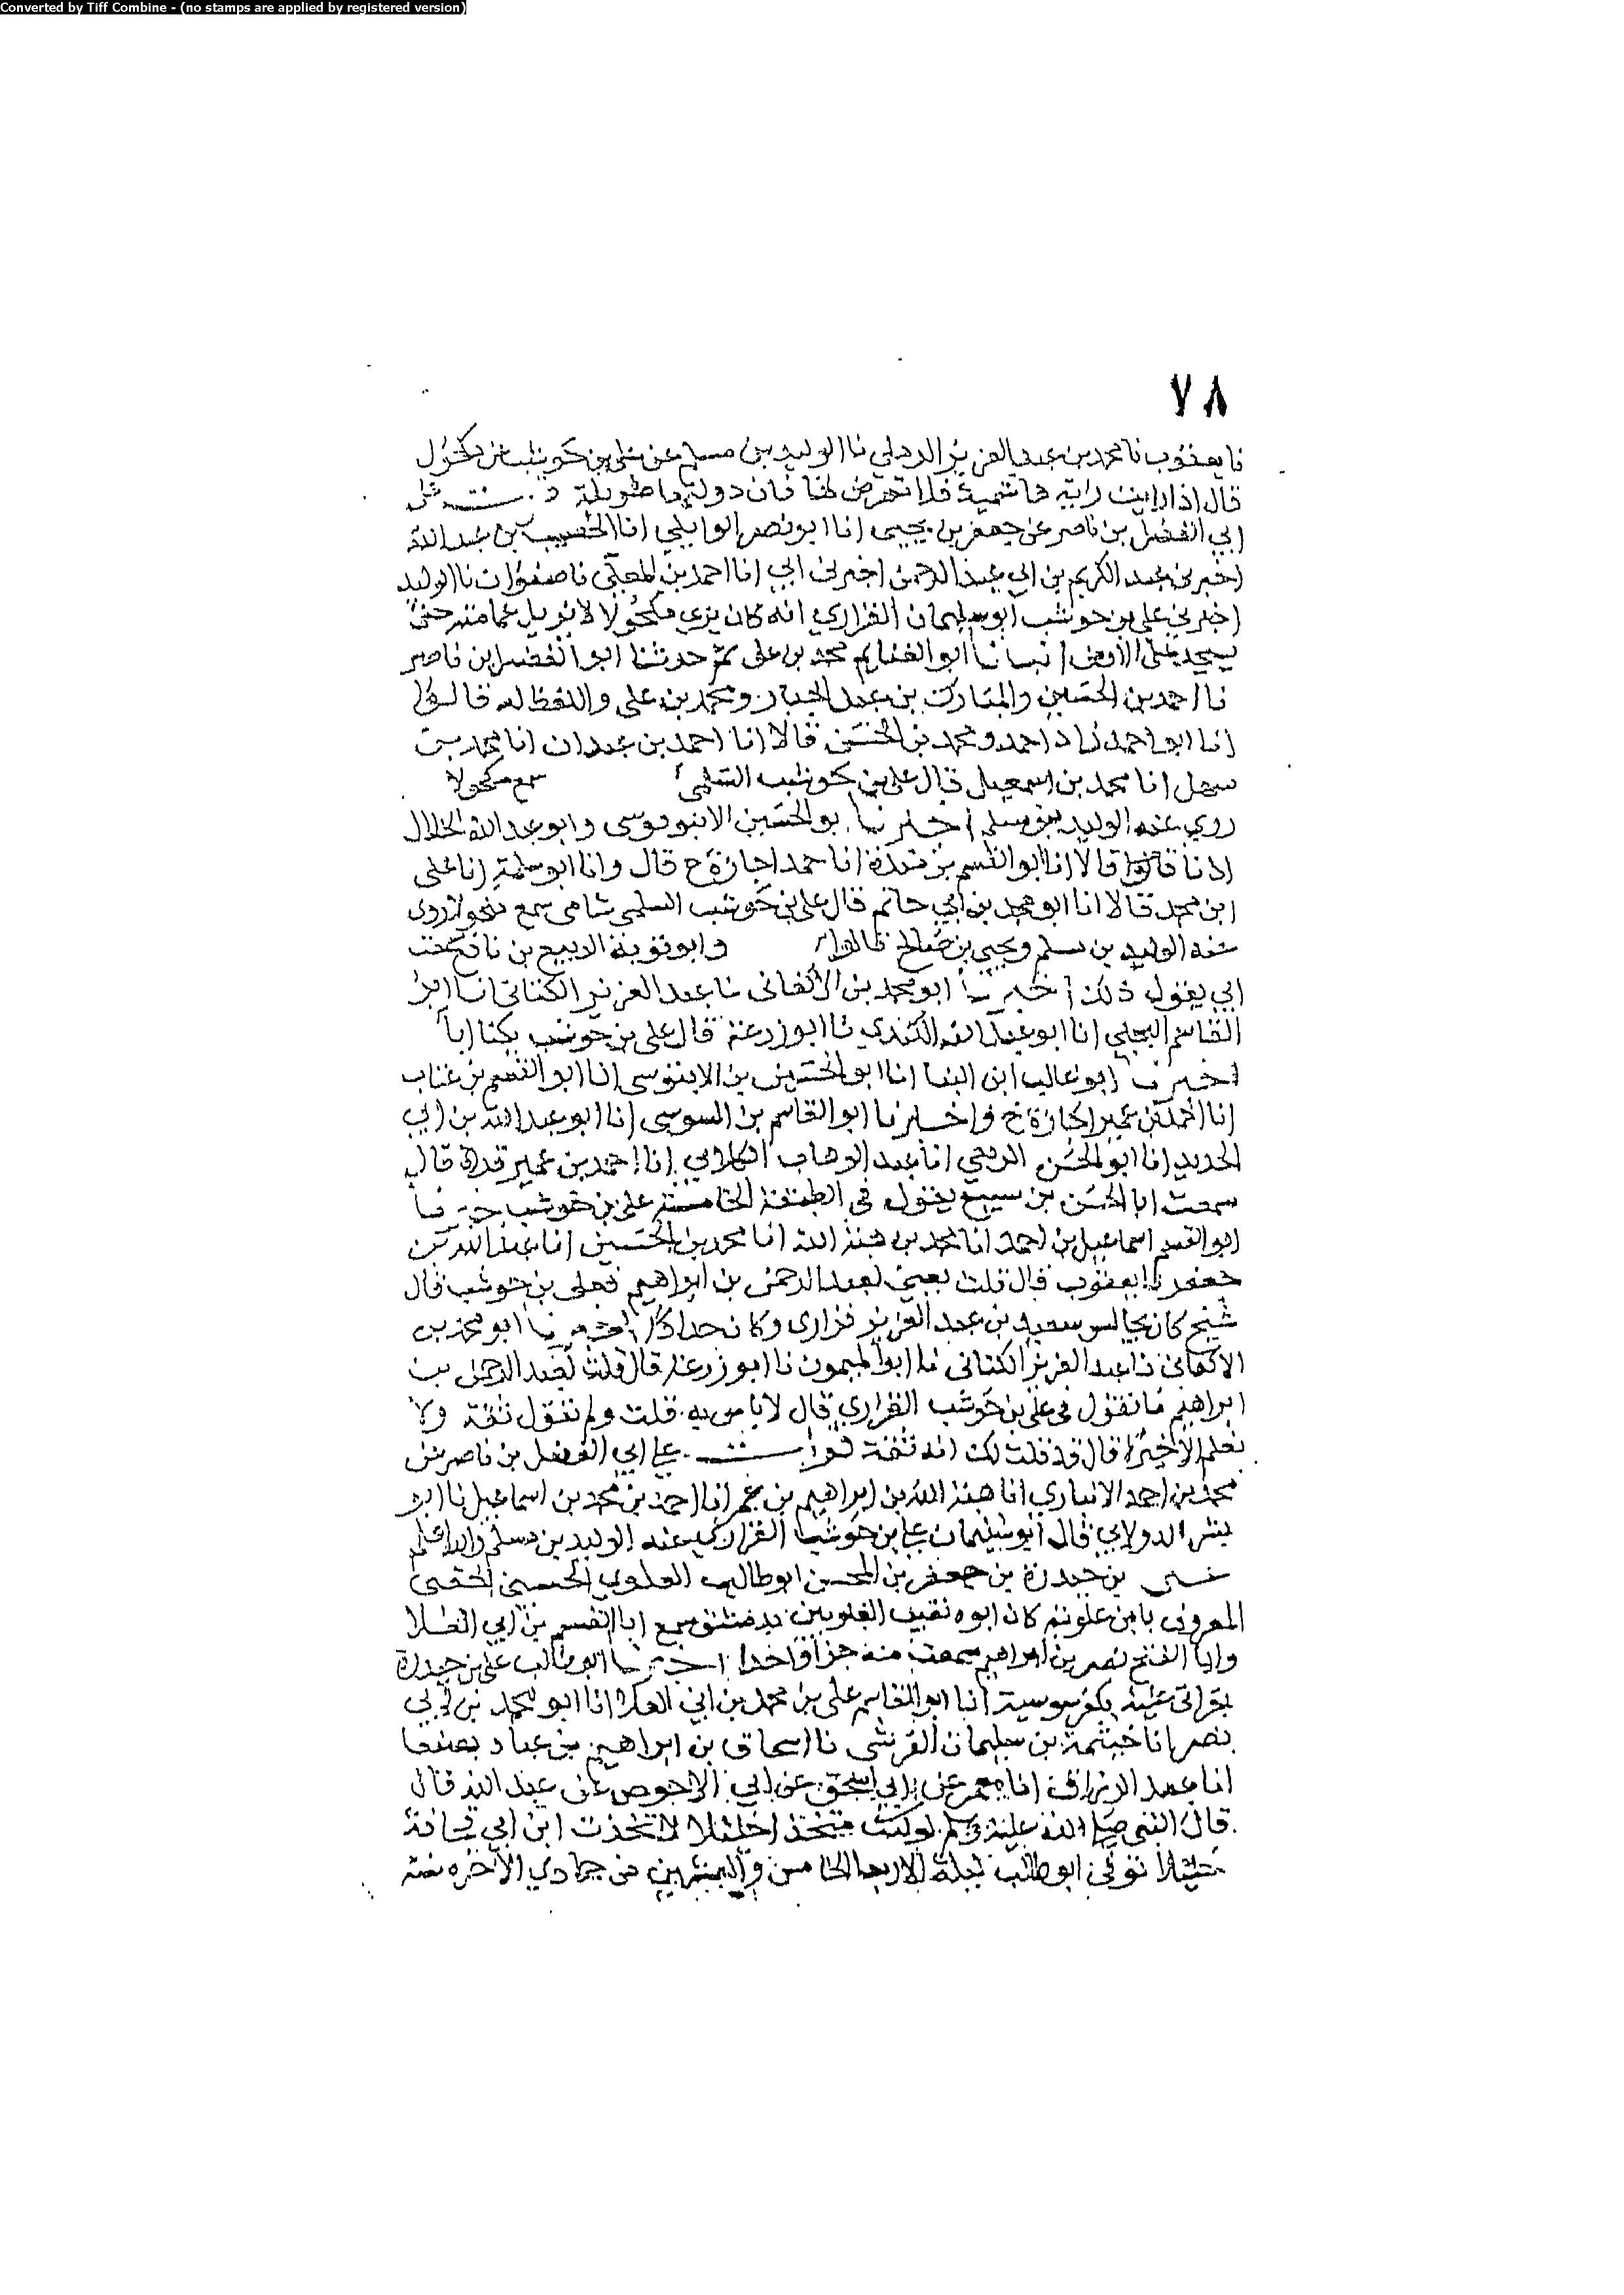 Converted by Tiff Combine - (no stamps are applied by registered version)
٧٨
نا يعقوب نا محمد بن عبد العزيز الرملي نا الوليد بن مسلم عن علي بن حوشب عن مكحول
قال اذا رايت راية هاشمية فلا تعرض لها فان دولتها طويلة قرات على
ابي الفضل بن ناصر عن جعفر بن يحيى انا ابو نصر الوايلي انا الخصيب بن عبد الله
اخبرني عبد الكريم بن ابي عبد الرحمن اخبرني ابي انا احمد بن المعلى نا صفوان نا الوليد
اخبرني علي بن حوشب ابو سليمان الفزاري انه كان يرى مكحولا لا يزيل عمامته حتى
يسجد على الارض انبانا ابو الغنايم محمد بن علي ثم حدثنا ابو الفضل بن ناصر
نا احمد بن الحسين والمبارك بن عبد الجبار ومحمد بن علي واللفظ له قالوا
انا ابو احمد زاد احمد ومحمد بن الحسن قالا انا احمد بن عبدان انا محمد بن
سهل انا محمد بن اسمعيل قال علي بن حوشب السلمي سمع مكحولا
روى عنه الوليد بن مسلم اخبرنا ابو الحسين الابنوسى وابو عبد الله الخلال
اذنا قالا انا ابو القسم بن منده انا حمد اجازة ح قال وانا ابو سلمة انا علي
ابن محمد قالا انا ابو محمد بن ابي حاتم قال علي بن حوشب السلمي شامى سمع مكحولا روى
عنه الوليد بن مسلم ويحيى بن صالح وابو توبة الربيع بن نافع سمعت
ابي يقول ذلك اخبرنا ابو محمد بن الاكفانى نا عبد العزيز الكتاني انا ابو
القاسم البجلي انا ابو عبد الله الكندي نا ابو زرعة قال علي بن حوشب يكنا ابا
اخبرنا ابو غالب ابن البنا انا ابو الحسين بن الابنوسى انا ابو القسم بن عتاب
انا احمد بن عمير اجازة ح واخبرنا ابو القاسم بن السوسى انا ابو عبد الله بن ابي
الحديد انا ابو الحسن الربعي انا عبد الوهاب الكلابي انا احمد بن عمير قراة قال
سمعت ابا الحسن بن سميع يقول في الطبقة الخامسة علي بن حوشب اخبرنا
ابو القسم اسماعيل بن احمد انا محمد بن هبة الله انا محمد بن الحسين انا عبد الله بن
جعفر نا يعقوب قال قلت يعنى لعبد الرحمن بن ابراهيم فعلي بن حوشب قال
شيخ كان يجالس سعيد بن عبد العزيز فزارى وكان اخبرنا ابو محمد بن
الاكفاني نا عبد العزيز الكتاني انا ابو الميمون نا ابو زرعة قال قلت لعبد الرحمن بن
ابراهيم ما تقول في علي بن حوشب الفزاري قال لا باس به قلت ولم تقول ثقة ولا
نعلم الا خيرا قال قد قلت لك انه ثقة قرات على ابي الفضل بن ناصر عن
محمد بن احمد الانباري انا هبة الله بن ابراهيم بن عمر انا احمد بن محمد بن اسماعيل نا ابو
بشر الدولابي قال ابو سليمان علي بن حوشب الفزاري عنه الوليد بن مسلم والله اعلم
علي بن حيدرة بن جعفر بن المحسن ابو طالب العلوي الحسيني
المعروف بابن علويه كان ابوه نقيب العلويين بدمشق سمع ابا القسم بن ابي العلا
وابا الفتح نصر بن ابراهيم سمعت منه جزا واحدا اخبرنا ابو طالب علي بن حيدرة
بقراتي عليه بكفرسوسية انا ابو القاسم علي بن محمد بن ابي العلا انا ابو محمد بن ابي
نصر انا خيثمة بن سليمان القرشي نا اسحاق بن ابراهيم بن عباد بصنعا
انا عبد الرزاق انا معمر عن ابي اسحق عن ابي الاحوص عن عبد الله قال
قال النبي صلى الله عليه وسلم لو كنت متخذا خليلا لاتخذت ابن ابي قحافة
خليلا توفى ابو طالب ليلة الاربعا الخامس والعشرين من جمادي الاخره سنة